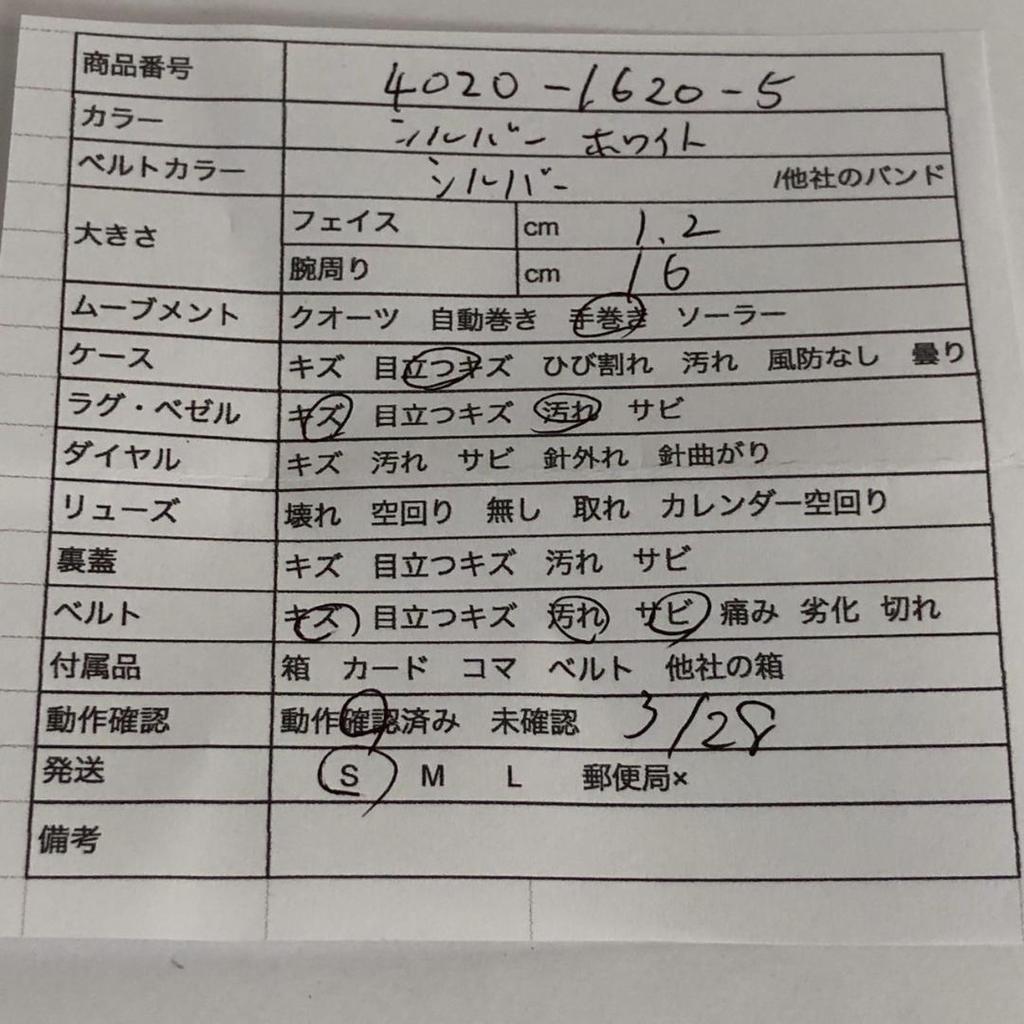 商品番号 4020-1620-5
カラー シルバー ホワイト
ベルトカラー シルバー /他社のバンド
大きさ フェイス cm 1.2
腕周り cm 16
ムーブメント クオーツ 自動巻き 手巻き ソーラー
ケース キズ 目立つキズ ひび割れ 汚れ 風防なし 曇り
ラグ・ベゼル キズ 目立つキズ 汚れ サビ
ダイヤル キズ 汚れ サビ 針外れ 針曲がり
リューズ 壊れ 空回り 無し 取れ カレンダー空回り
裏蓋 キズ 目立つキズ 汚れ サビ
ベルト キズ 目立つキズ 汚れ サビ 痛み 劣化 切れ
付属品 箱 カード コマ ベルト 他社の箱
動作確認 動作確認済み 未確認 3/28
発送 S M L 郵便局×
備考